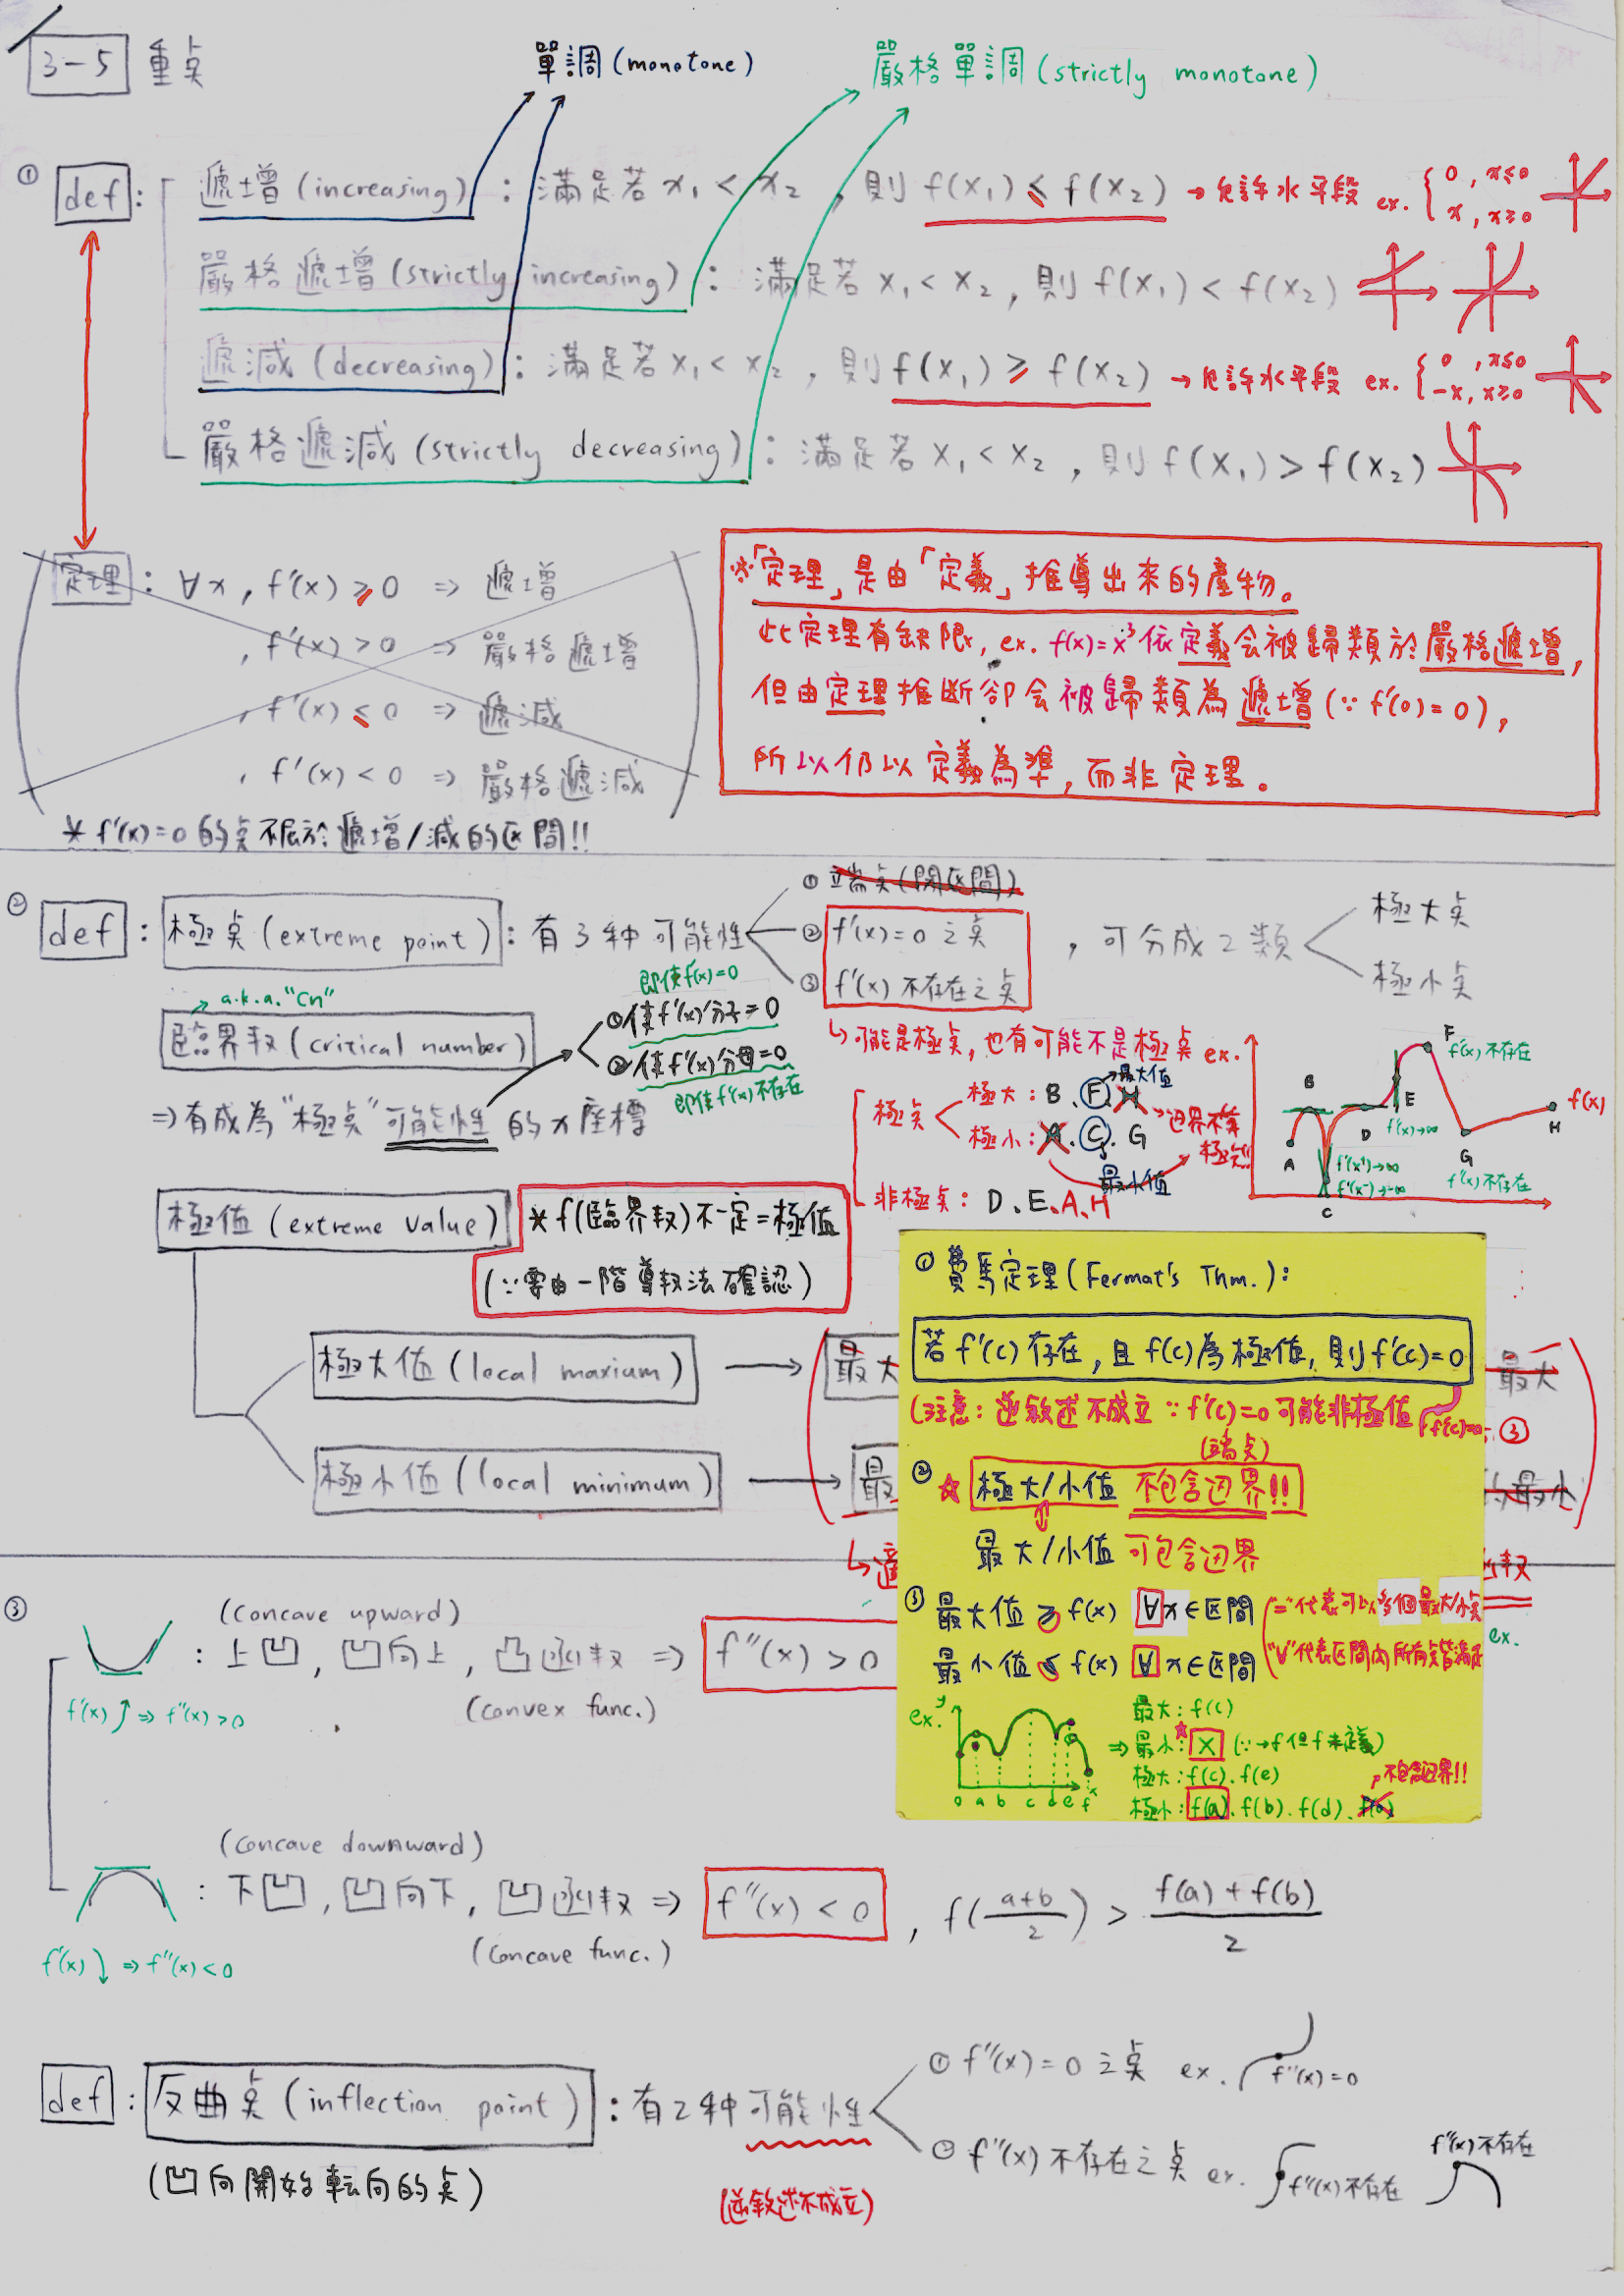 3-5 重点
單調(monotone) 嚴格單調(strictly monotone)
① def: 遞增(increasing):滿足若 x₁ < x₂,則 f(x₁) ≤ f(x₂) → 允許水平段 ex. { 0, x≤0
x, x≥0
嚴格遞增(strictly increasing):滿足若 x₁ < x₂,則 f(x₁) < f(x₂)
遞減(decreasing):滿足若 x₁ < x₂,則 f(x₁) ≥ f(x₂) → 允許水平段 ex. { 0, x≤0
-x, x≥0
嚴格遞減(strictly decreasing):滿足若 x₁ < x₂,則 f(x₁) > f(x₂)
定理:∀x, f'(x) ≥ 0 ⇒ 遞增
, f'(x) > 0 ⇒ 嚴格遞增
, f'(x) ≤ 0 ⇒ 遞減
, f'(x) < 0 ⇒ 嚴格遞減
※「定理」是由「定義」推導出來的產物。
此定理有缺限, ex. f(x)=x³ 依定義会被歸類於嚴格遞增,
但由定理推斷卻会被歸類為遞增(∵f'(0)=0),
所以仍以定義為準,而非定理。
* f'(x)=0 的点不屬於遞增/減的区間!!
② def: 極点(extreme point):有3种可能性
① 端点(閉区間)
② f'(x)=0 之点
③ f'(x) 不存在之点
,可分成2類
極大点
極小点
→ a.k.a. "Cn"
臨界数(critical number)
即使f'(x)=0
①使f'(x)分子=0
②使f'(x)分母=0
即使f'(x)不存在
⇒有成為"極点"可能性的x座標
↳可能是極点,也有可能不是極点 ex.
極点 極大:B、F、H →最大值
極小:A、C、G →边界不算極点!!
最小值
非極点:D、E、A、H
A B C D E F G H f(x)
f'(x)不存在
f'(x)→∞
f'(x⁺)→∞
f'(x⁻)→-∞
f'(x)不存在
極值(extreme value)
* f(臨界数)不一定=極值
(∵要由一階導数法確認)
極大值(local maxium) → 最大
最大
極小值(local minimum) → 最
最小
③
① 費馬定理(Fermat's Thm.):
若 f'(c) 存在,且 f(c)為極值,則 f'(c)=0
(注意:逆敘述不成立 ∵f'(c)=0 可能非極值
(端点)
② ☆ 極大/小值 不包含边界!!
最大/小值 可包含边界
③ 最大值 ≥ f(x) ∀x∈区間 ("="代表可以多個最大/小点
最小值 ≤ f(x) ∀x∈区間 ("∀"代表区間內所有点皆滿足
ex. y
0 a b c d e f x
最大:f(c)
⇒ 最小:X
極大:f(c)、f(e)
極小:f(a)、f(b)、f(d)
不包含边界!!
ex.
③ (concave upward)
:上凹,凹向上,凸函数 ⇒ f''(x) > 0
(convex func.)
f'(x)↑ ⇒ f''(x)>0
(concave downward)
:下凹,凹向下,凹函数 ⇒ f''(x) < 0 , f((a+b)/2) > (f(a)+f(b))/2
(concave func.)
f'(x)↓ ⇒ f''(x)<0
def: 反曲点(inflection point):有2种可能性
① f''(x)=0 之点 ex. f''(x)=0
② f''(x) 不存在之点 ex. f''(x)不存在 f''(x)不存在
(凹向開始転向的点)
(逆敘述不成立)